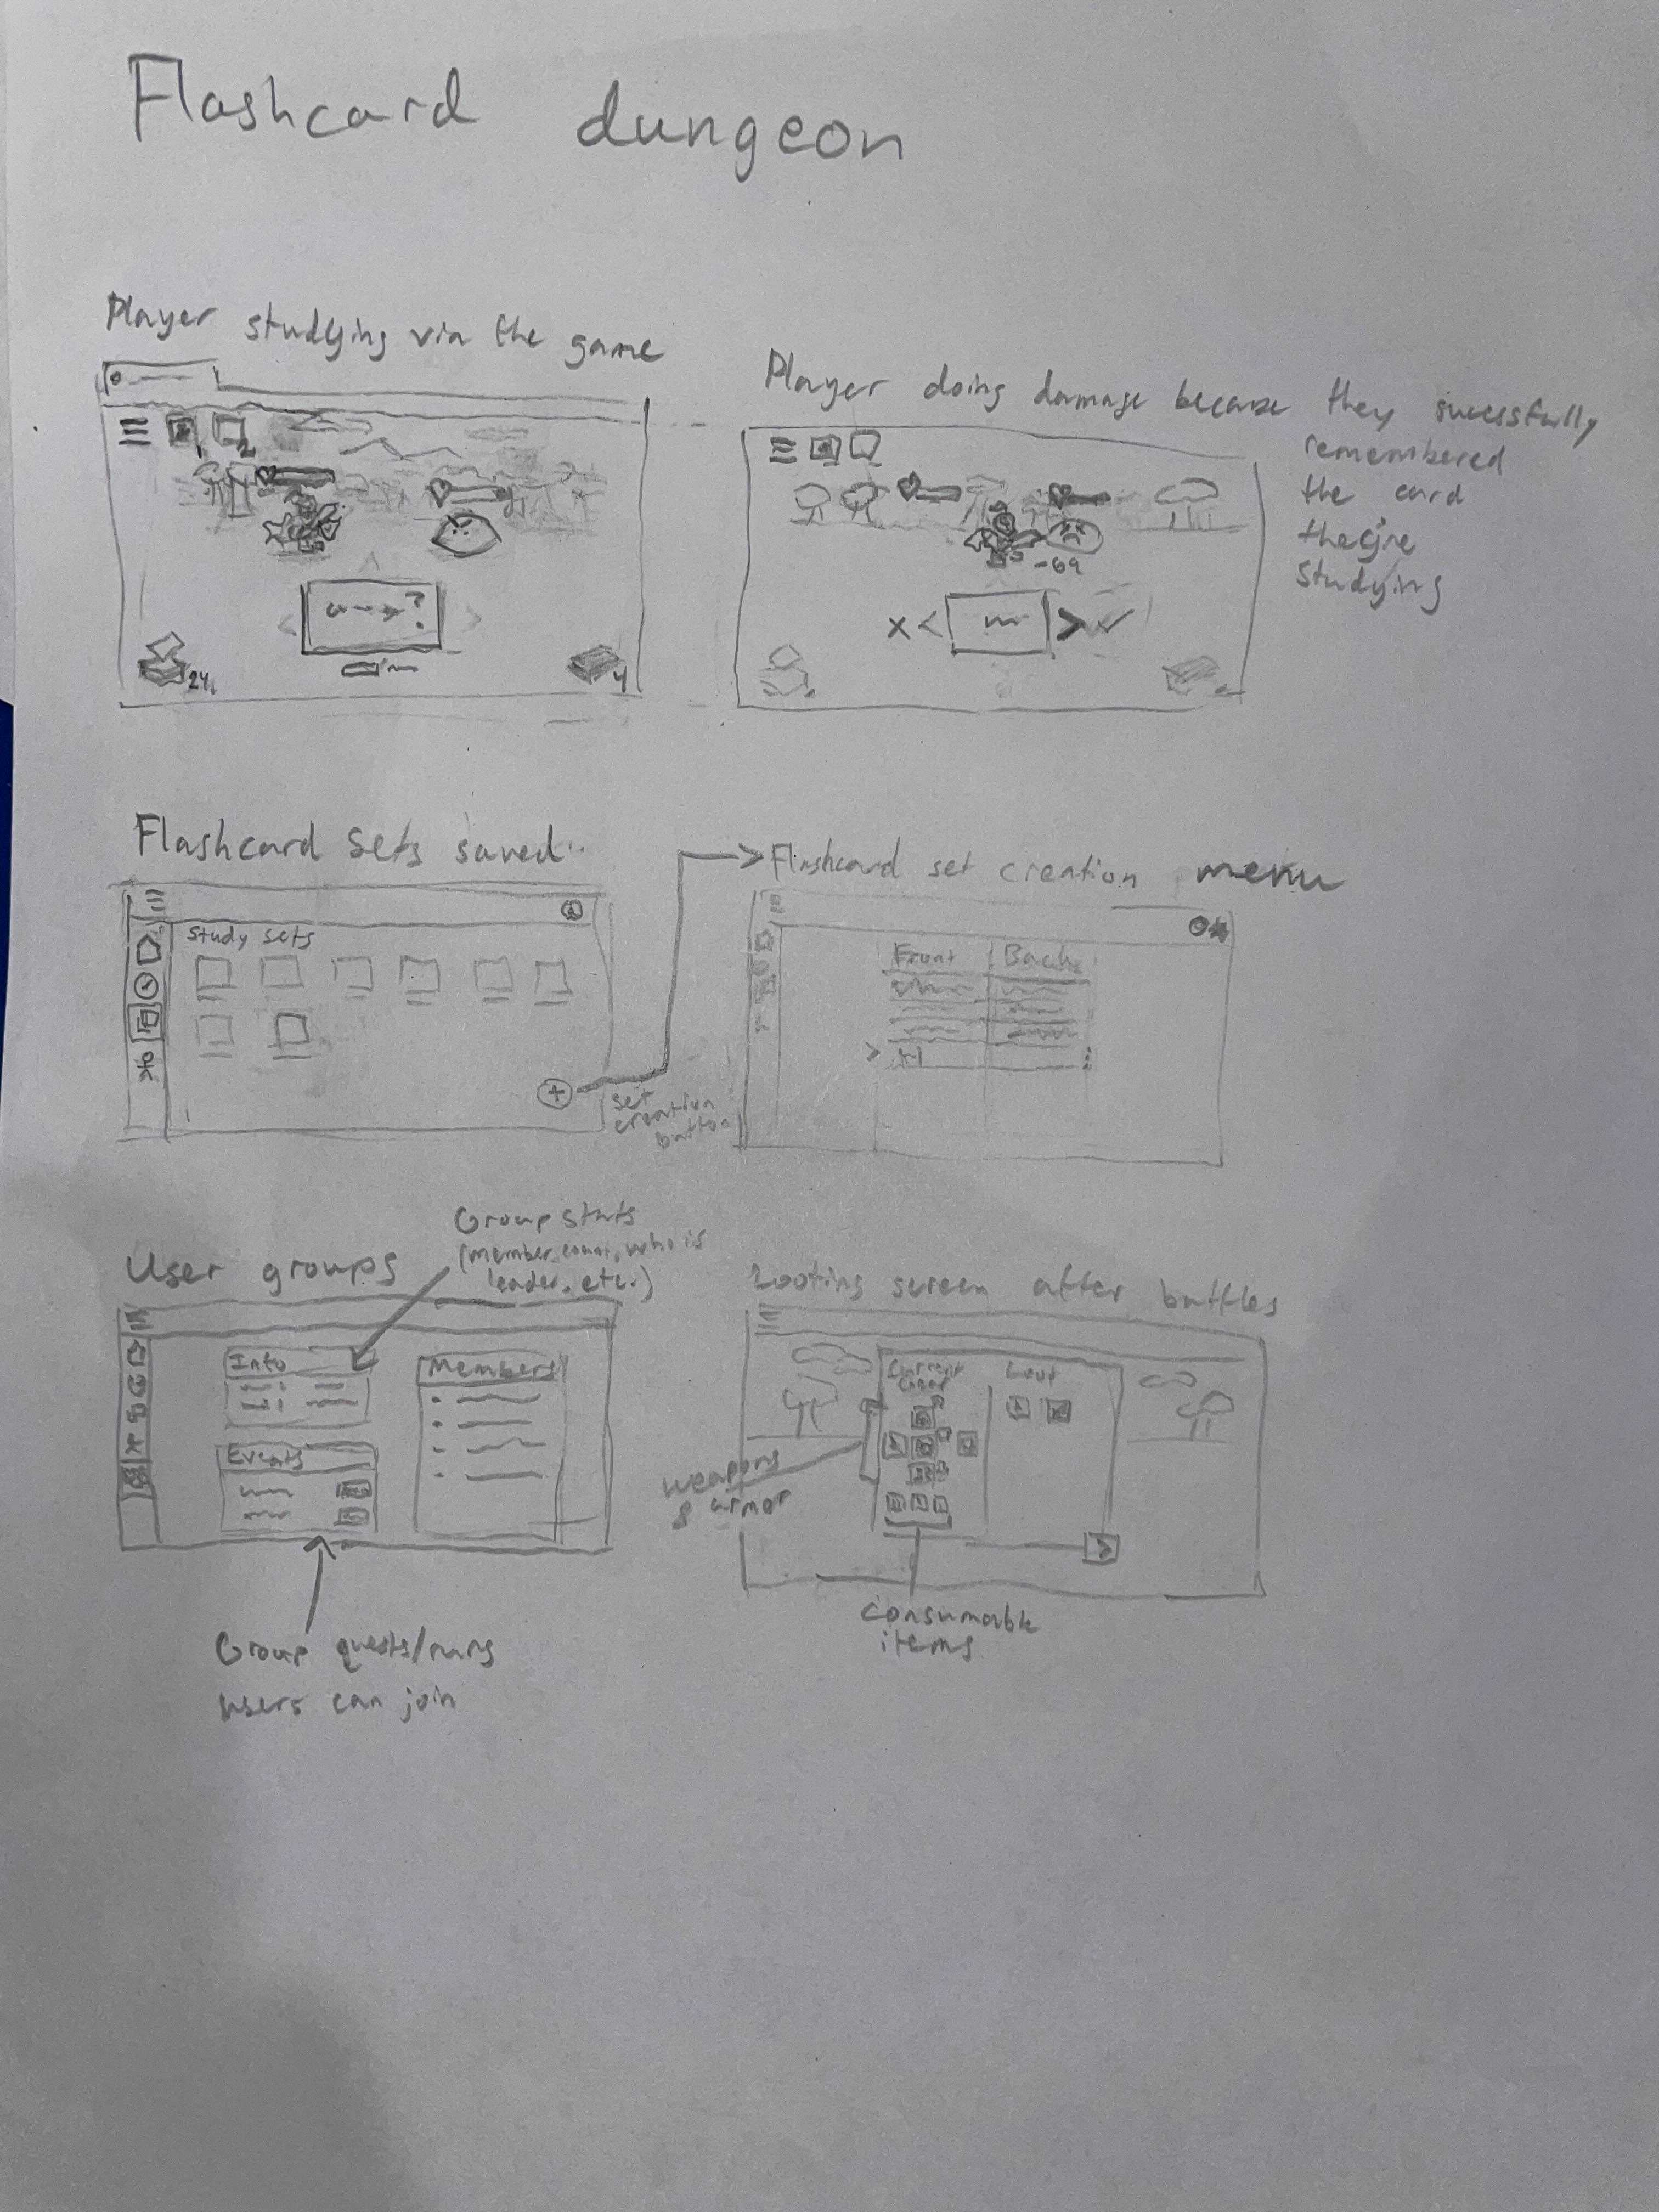 Flashcard dungeon
Player studying via the game
1 2
?
24
4
Player doing damage because they sucessfully
remembered
the card
they're
studying
-69
x < > ✓
Flashcard sets saved
Study sets
+
set
creation
button
> Flashcard set creation menu
Front Back
User groups
Group stats
(member count, who is
leader, etc.)
Info
Members
Events
Group quests/runs
users can join
Looting screen after battles
Current
Loot
weapons
& armor
>
consumable
items